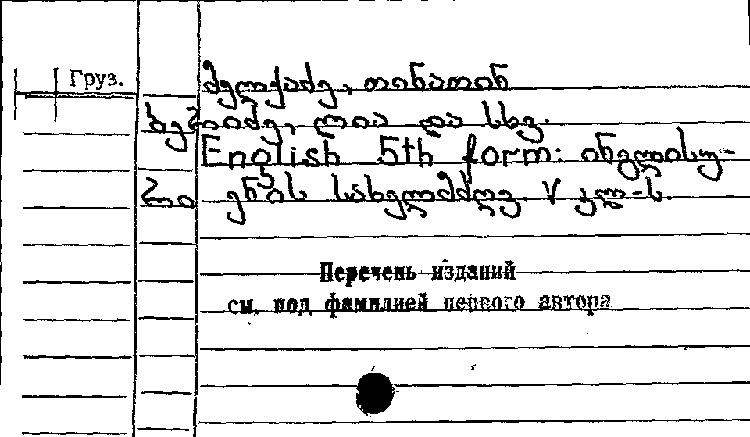 Груз.
მელიქაძე, თინათინ
ბერიძე, ლია და სხვ.
English 5th form: ინგლისუ-
რი ენის სახელმძღვ. V კლ-ს.
Перечень изданий
см. под фамилией первого автора